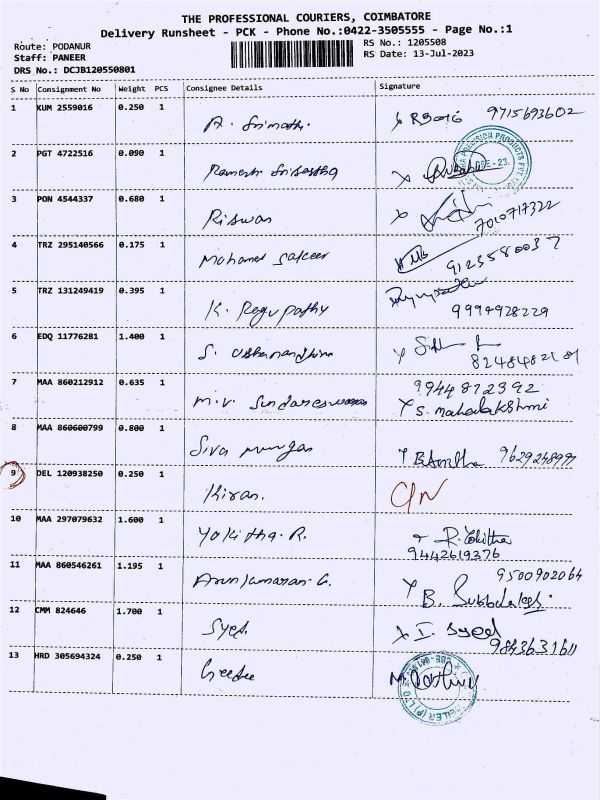 THE PROFESSIONAL COURIERS, COIMBATORE
Delivery Runsheet - PCK - Phone No.:0422-3505555 - Page No.:1
Route: PODANUR RS No.: 1205508
Staff: PANEER RS Date: 13-Jul-2023
DRS No.: DCJB120550801
S No Consignment No Weight PCS Consignee Details Signature
1 KUM 2559016 0.250 1
R. Srimathi 9715693602
2 PGT 4722516 0.090 1
Ramesh
3 PON 4544337 0.680 1
Riswan 7010717322
4 TRZ 295140566 0.175 1
Mohamed Safeer 9123580037
5 TRZ 131249419 0.395 1
K. Regupathy 9994928229
6 EDQ 11776281 1.400 1
S.
7 MAA 860212912 0.635 1 9944872392
M.V. Sundareswaran S. Mahalakshmi
8 MAA 860600799 0.800 1
Siva B.Anitha
9 DEL 120938250 0.250 1
Kiran.
10 MAA 297079632 1.600 1
Yokitha.R. R.Yokitha
9442619376
11 MAA 860546261 1.195 1 9500902064
Arunkumaran G. B.
12 CMM 824646 1.700 1
Syed. I. Syed
9843631611
13 HRD 305694324 0.250 1
Geethu